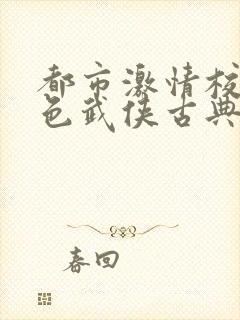 都市激情校
色武侠古典
春回